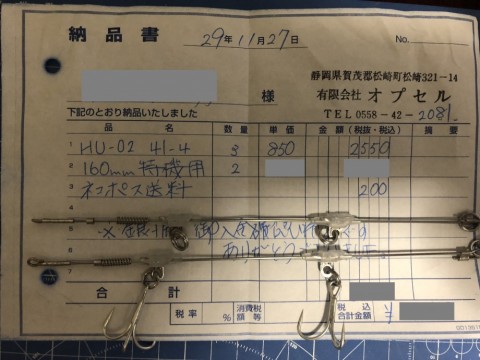 納品書
29年11月27日
No.
静岡県賀茂郡松崎町松崎321-14
様
有限会社 オプセル
下記のとおり納品いたしました
TEL 0558-42-2081
品 名 数量 単価 金額(税抜・税込) 摘要
1 HU-02 41-4 3 850 2550
2 160mm 2
3 ネコポス送料 200
4
5
6 ありがとう
7
合計
税率 % 消費税額等 税込合計金額 ¥